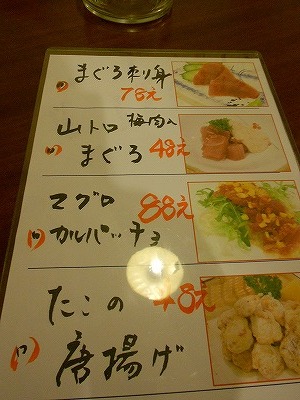 まぐろ刺り身
78え
山トロ 梅肉入
まぐろ 48え
マグロ 88え
カルパッチョ
たこの 48え
唐揚げ